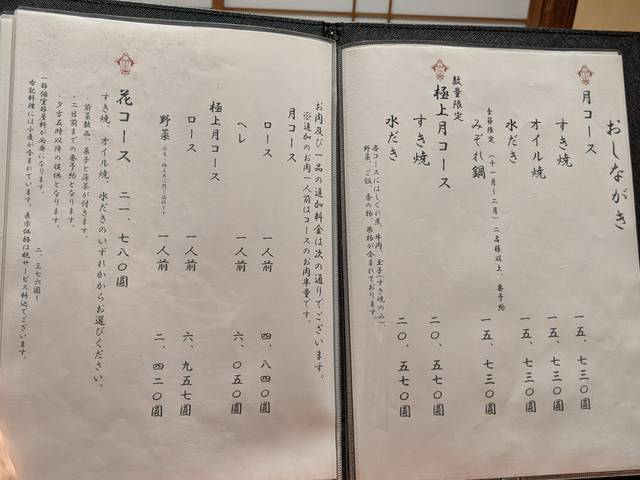 おしながき
月コース
すき焼 一五、七三〇圓
オイル焼 一五、七三〇圓
水だき 一五、七三〇圓
季節限定 (十一月〜二月) 二名様以上、要予約
みぞれ鍋 一五、七三〇圓
数量限定
極上月コース
すき焼 二〇、五七〇圓
水だき 二〇、五七〇圓
各コースにはしぐれ煮、牛肉、玉子(すき焼のみ)、
野菜、ご飯、香の物、果物が含まれております。
お肉及び一品の追加料金は次の通りでございます。
※追加のお肉一人前はコースのお肉半量です。
月コース
ロース 一人前 四、八四〇圓
ヘレ 一人前 六、〇五〇圓
極上月コース
ロース 一人前 六、九五七圓
野菜 一人前 二、四二〇圓
花コース 二一、七八〇圓
すき焼、オイル焼、水だきのいずれかからお選びください。
・前菜数品、菓子と薄茶が付きます。
・二日前までの要予約となります。
・夕方五時以降の提供となります。
一部個室部屋料が必要になります。 二、三七六圓〜
右記料理には小麦が含まれています。表示価格は税サービス料込でございます。